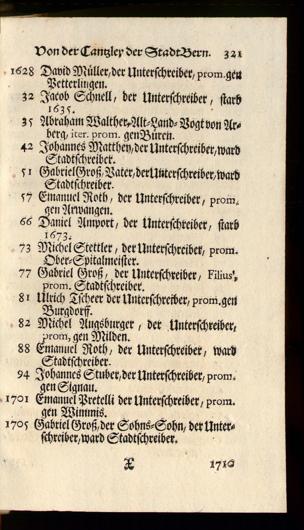 Von der Cantzley der Stadt Bern. 321
1628 David Müller, der Unterschreiber, prom. gen
Petterlingen.
32 Jacob Schnell, der Unterschreiber, starb
1635.
35 Abraham Walther, Alt-Land-Vogt von Ar-
berg, iter. prom. gen Büren.
42 Johannes Matthey, der Unterschreiber, ward
Stadtschreiber.
51 Gabriel Groß, Vater, der Unterschreiber, ward
Stadtschreiber.
57 Emanuel Roth, der Unterschreiber, prom.
gen Arwangen.
66 Daniel Amport, der Unterschreiber, starb
1673.
73 Michel Stettler, der Unterschreiber, prom.
Ober-Spitalmeister.
77 Gabriel Groß, der Unterschreiber, Filius,
prom. Stadtschreiber.
81 Ulrich Tscheer der Unterschreiber, prom. gen
Burgdorff.
82 Michel Augsburger, der Unterschreiber,
prom, gen Milden.
88 Emanuel Roth, der Unterschreiber, ward
Stadtschreiber.
94 Johannes Stuber, der Unterschreiber, prom.
gen Signau.
1701 Emanuel Pretelli der Unterschreiber, prom.
gen Wimmis.
1705 Gabriel Groß, der Sohns-Sohn, der Unter-
schreiber, ward Stadtschreiber.
X 1710